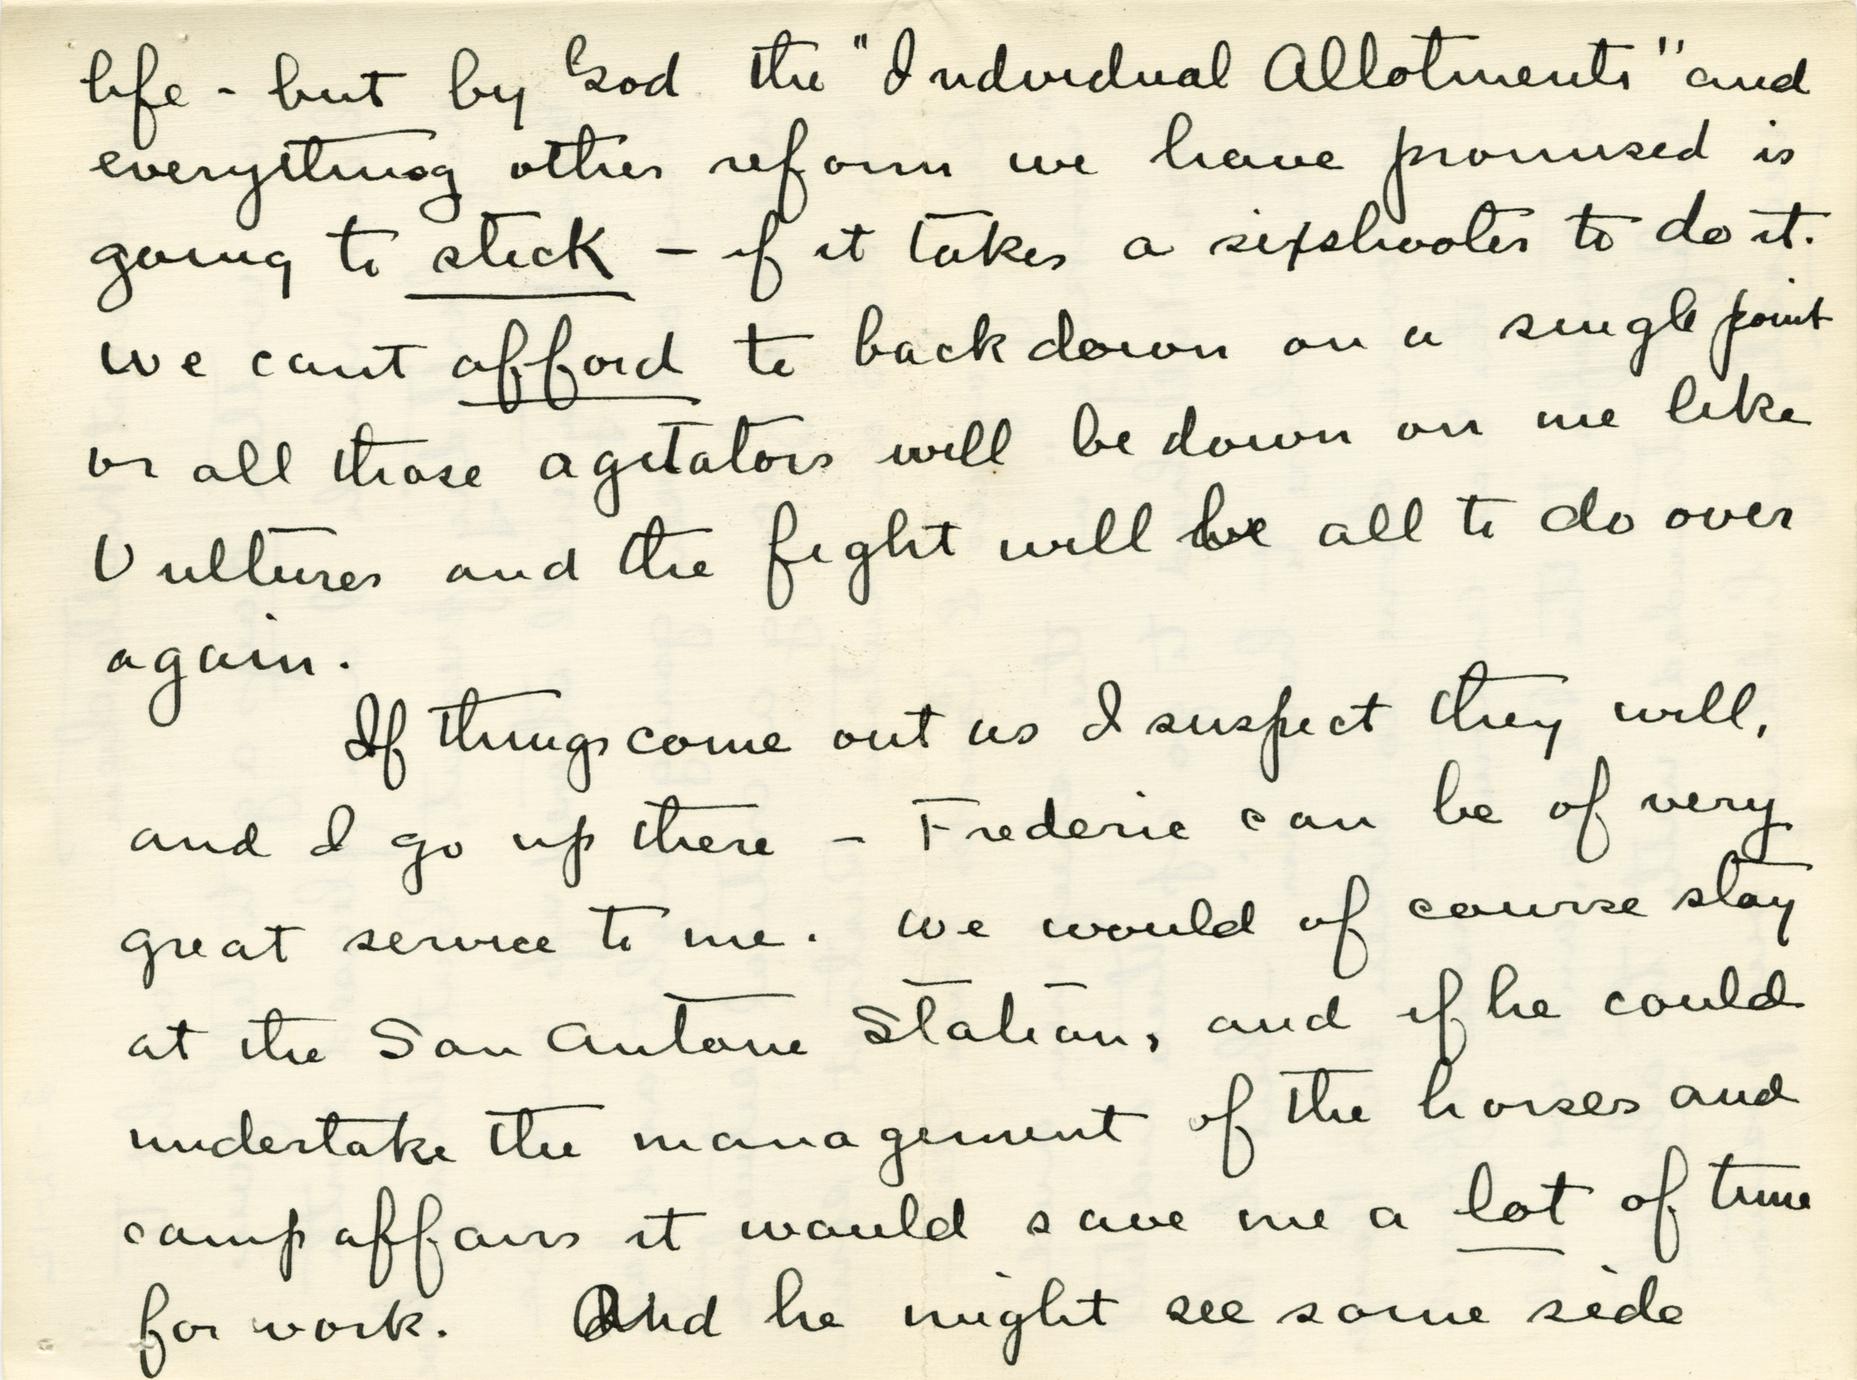 life - but by God the "Individual Allotments" and
everything other reform we have promised is
going to stick - if it takes a sixshooter to do it.
We cant afford to back down on a single point
or all those agitators will be down on me like
Vultures and the fight will be all to do over
again.
If things come out as I suspect they will,
and I go up there - Frederic can be of very
great service to me. We would of course stay
at the San Antone Station, and if he could
undertake the management of the horses and
camp affairs it would save me a lot of time
for work. And he might see some side